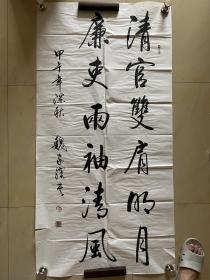 清官雙肩明月
廉吏兩袖清風
甲午年深秋